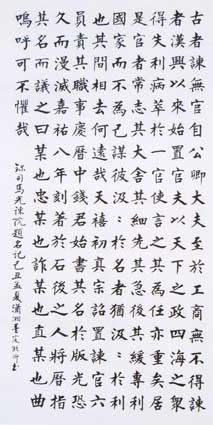 古者諫無官自公卿大夫至於工商無不得諫
者漢興以來始置官夫以天下之政四海之眾
得失利病萃於一官使言之其為任亦重矣居
是官者當志其大舍其細先其急後其緩專利
國家而不為己謀彼汲〻於名者猶汲〻於利
也其間相去何遠哉天禧初真宗詔置諫官六
員責其職事慶曆中錢君始書其名於版光恐
久而漫滅嘉祐八年刻著於石後之人將曆指
其名而議之曰某也忠某也詐某也直某也曲
嗚呼可不懼哉
錄司馬光諫院題名記己丑孟夏瀟湘墨客書